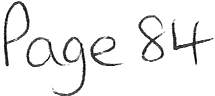 Page 84